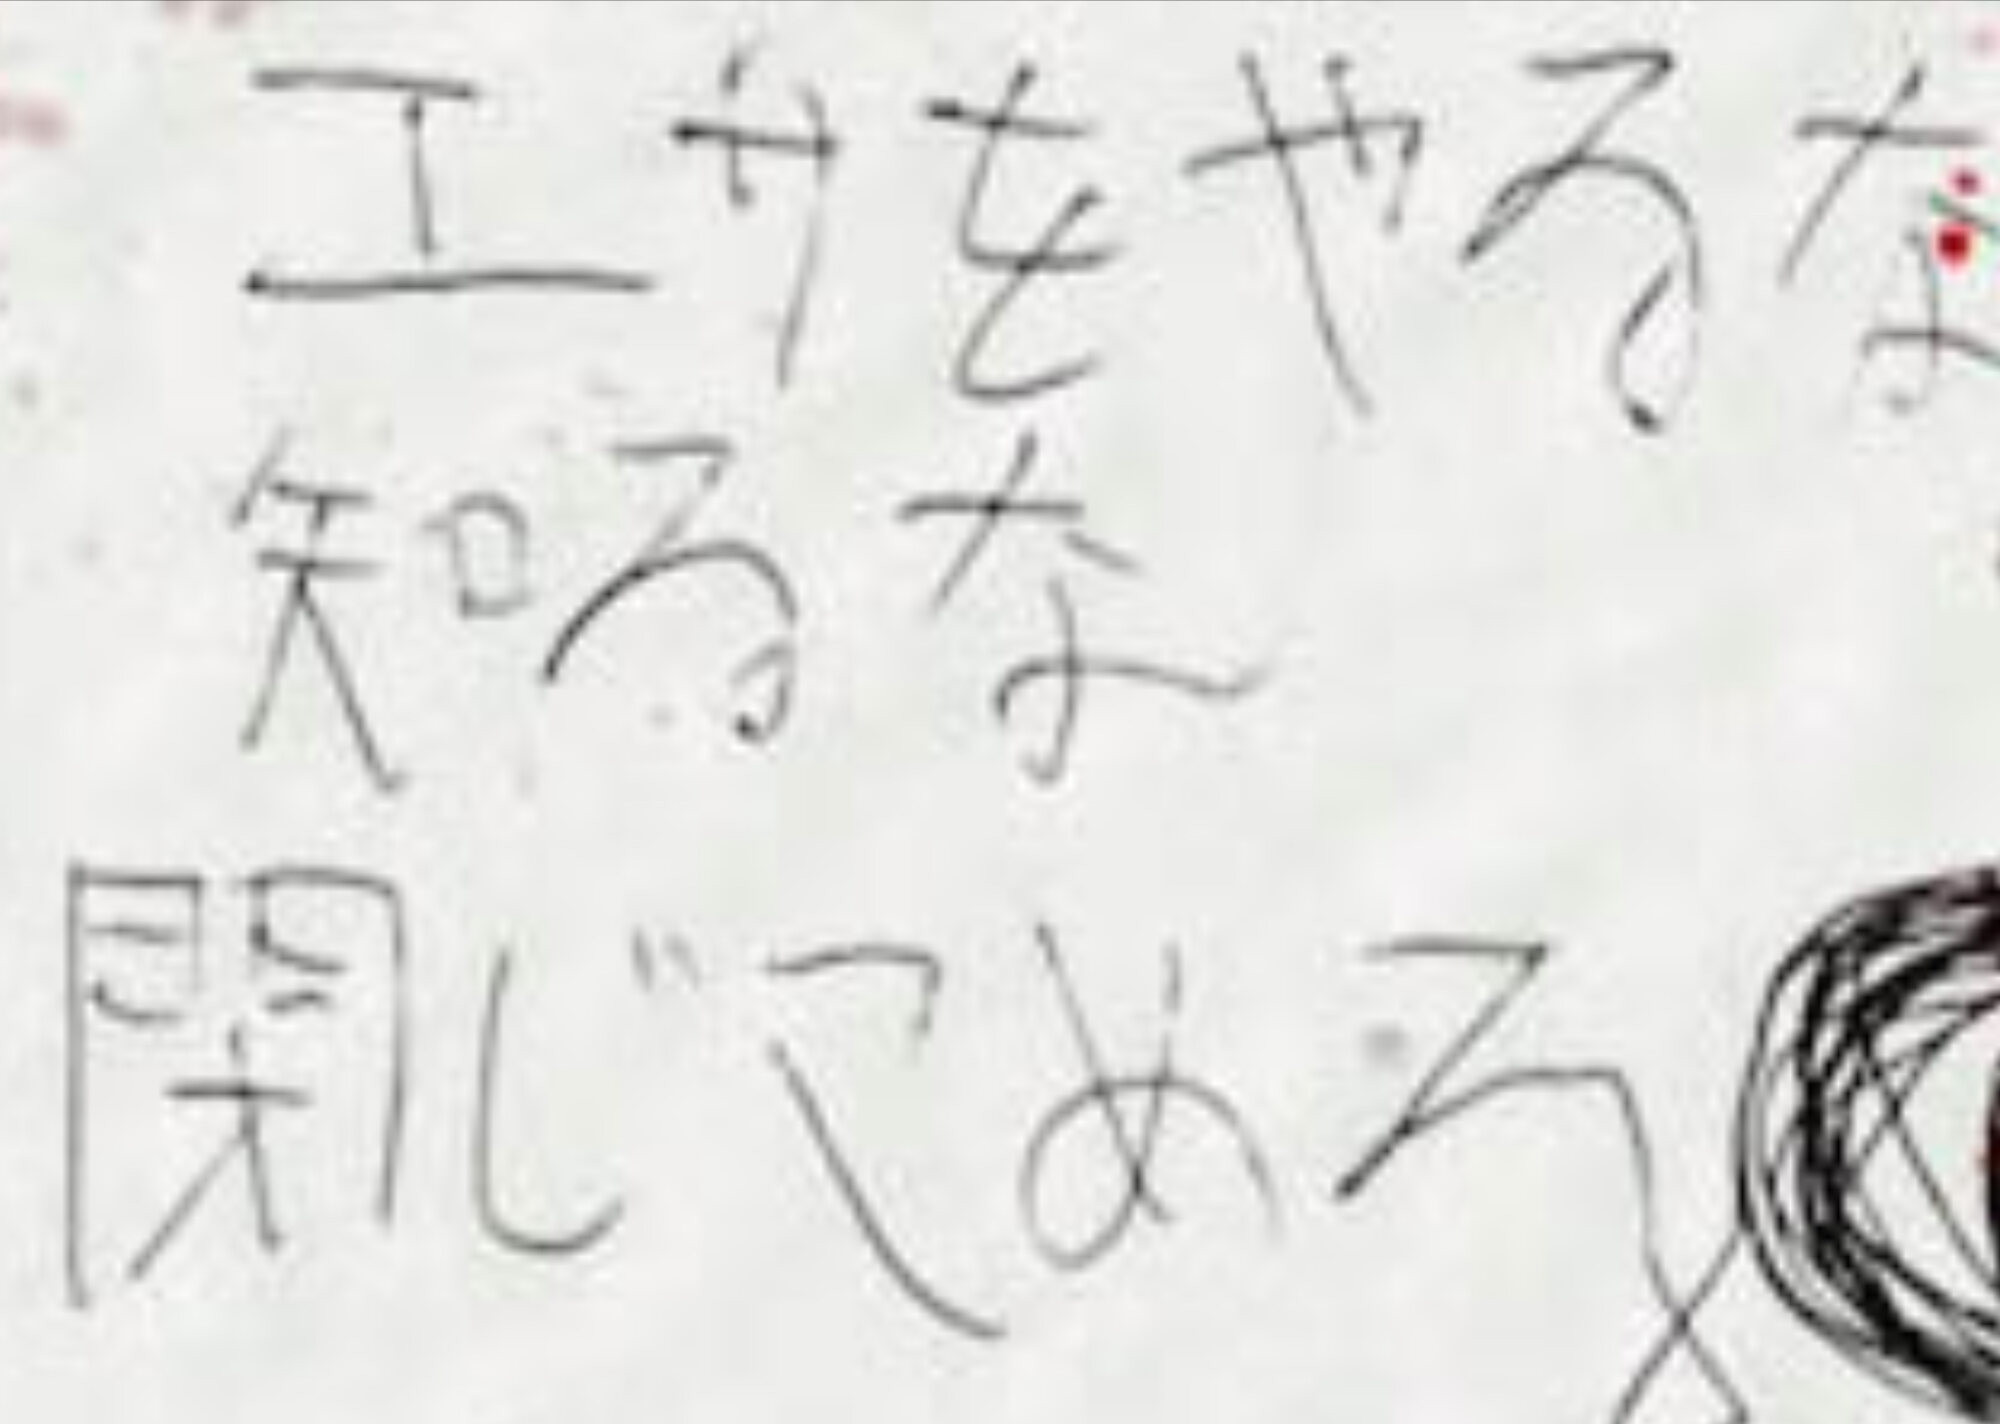 エサをやるな
知るな
閉じこめろ